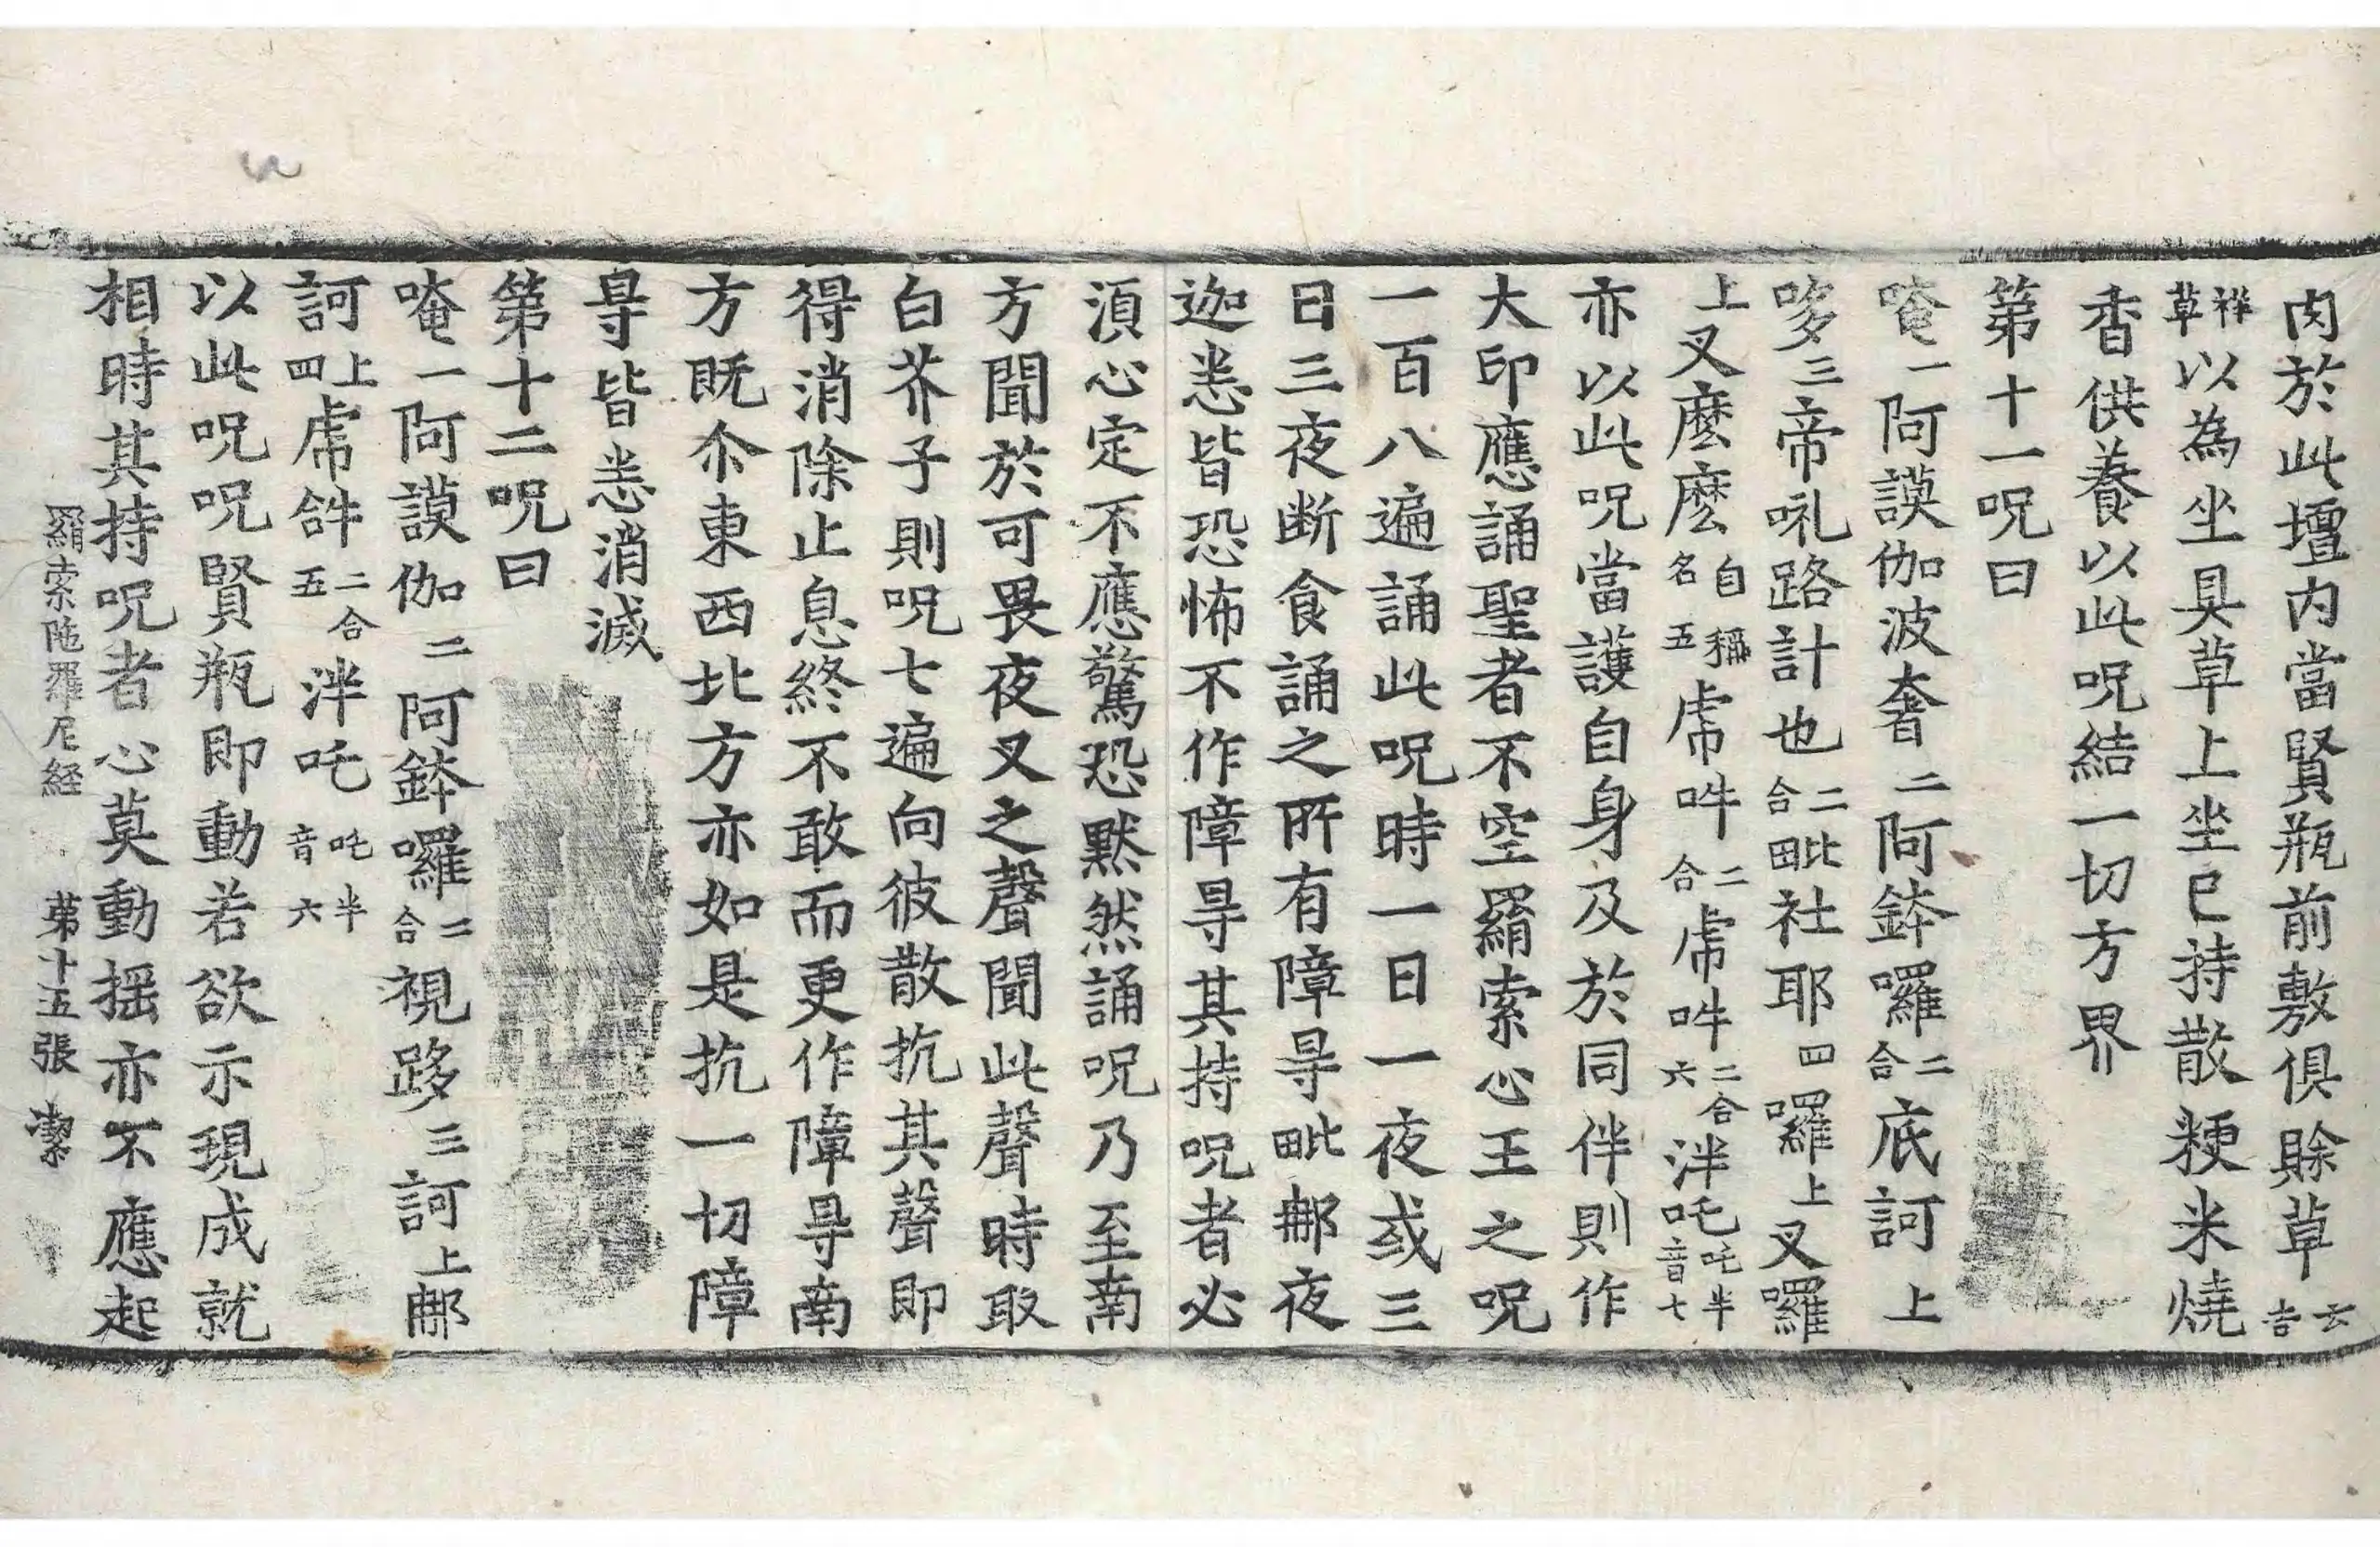 肉於此壇内當賢瓶前敷俱賒草云吉
祥草以為坐具草上坐已持散粳米燒
香供養以此呪結一切方界
第十一呪曰
唵一阿謨伽波奢二阿鉢囉二合底訶上
哆三帝吼路計也二合毗社耶四囉上叉囉
上叉麽麽自稱名五虎𤙖二合虎𤙖二合六泮吒吒半音七
亦以此呪當護自身及於同伴則作
大印應誦聖者不空羂索心王之呪
一百八遍誦此呪時一日一夜或三
日三夜断食誦之所有障㝵毗那夜
迦恙皆恐怖不作障㝵其持呪者必
湏心定不應驚恐黙然誦呪乃至南
方聞於可畏夜叉之聲聞此聲時取
白芥子則呪七遍向彼散抗其聲即
得消除止息終不敢而更作障㝵南
方既尒東西北方亦如是抗一切障
㝵皆悉消滅
第十二呪曰
唵一阿謨伽二阿鉢囉二合視跢三訶上那
訶上四虎𤙖二合五泮吒吒半音六
以此呪呪賢瓶即動若欲示現成就
相時其持呪者心莫動揺亦不應起
羂索陁羅尼経 苐十五張 潔